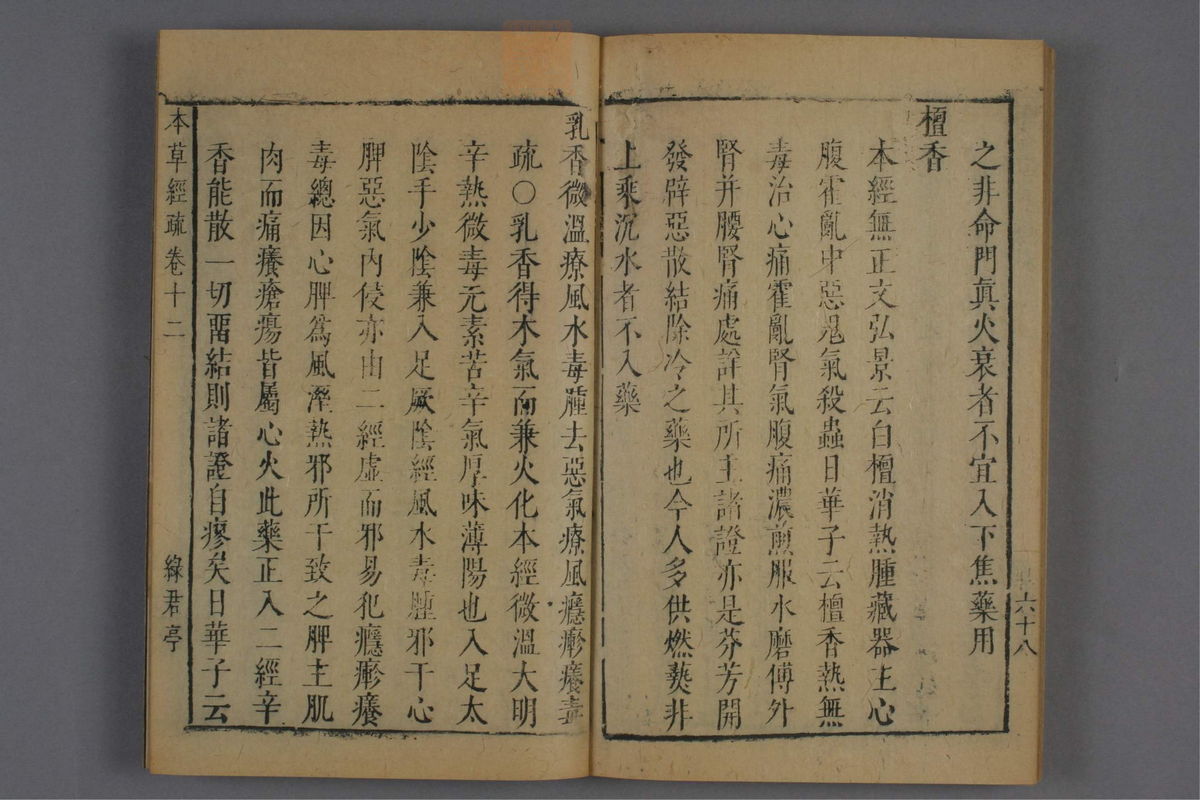 之非命門眞火衰者不宜入下焦藥用
檀香
本經無正文弘景云白檀消熱腫藏器主心
腹霍亂中惡鬼氣殺蟲日華子云檀香熱無
毒治心痛霍亂腎氣腹痛濃煎服水磨傅外
腎并腰腎痛處詳其所主諸證亦是芬芳開
發辟惡散結除冷之藥也今人多供燃爇非
上乘沉水者不入藥
六十八
乳香微溫療風水毒腫去惡氣療風癮瘮癢毒
疏○乳香得木氣而兼火化本經微溫大明
辛熱微毒元素苦辛氣厚味薄陽也入足太
陰手少陰兼入足厥陰經風水毒腫邪干心
脾惡氣內侵亦由二經虛而邪易犯癮瘮癢
毒總因心脾爲風溼熱邪所干致之脾主肌
肉而痛癢瘡瘍皆屬心火此藥正入二經辛
香能散一切畱結則諸證自瘳矣日華子云
本草經疏 卷十二
綠君亭